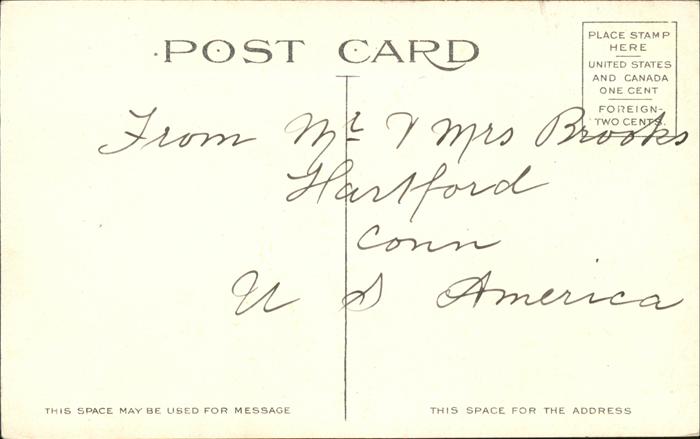 POST CARD
PLACE STAMP
HERE
UNITED STATES
AND CANADA
ONE CENT
FOREIGN-
TWO CENTS.
From Mr & Mrs Brooks
Hartford
Conn
U S America
THIS SPACE MAY BE USED FOR MESSAGE
THIS SPACE FOR THE ADDRESS